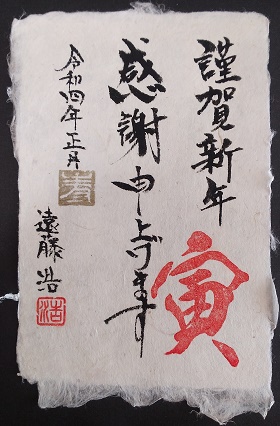 謹賀新年
寅
感謝申し上げます
令和四年正月
寿
遠藤浩
浩